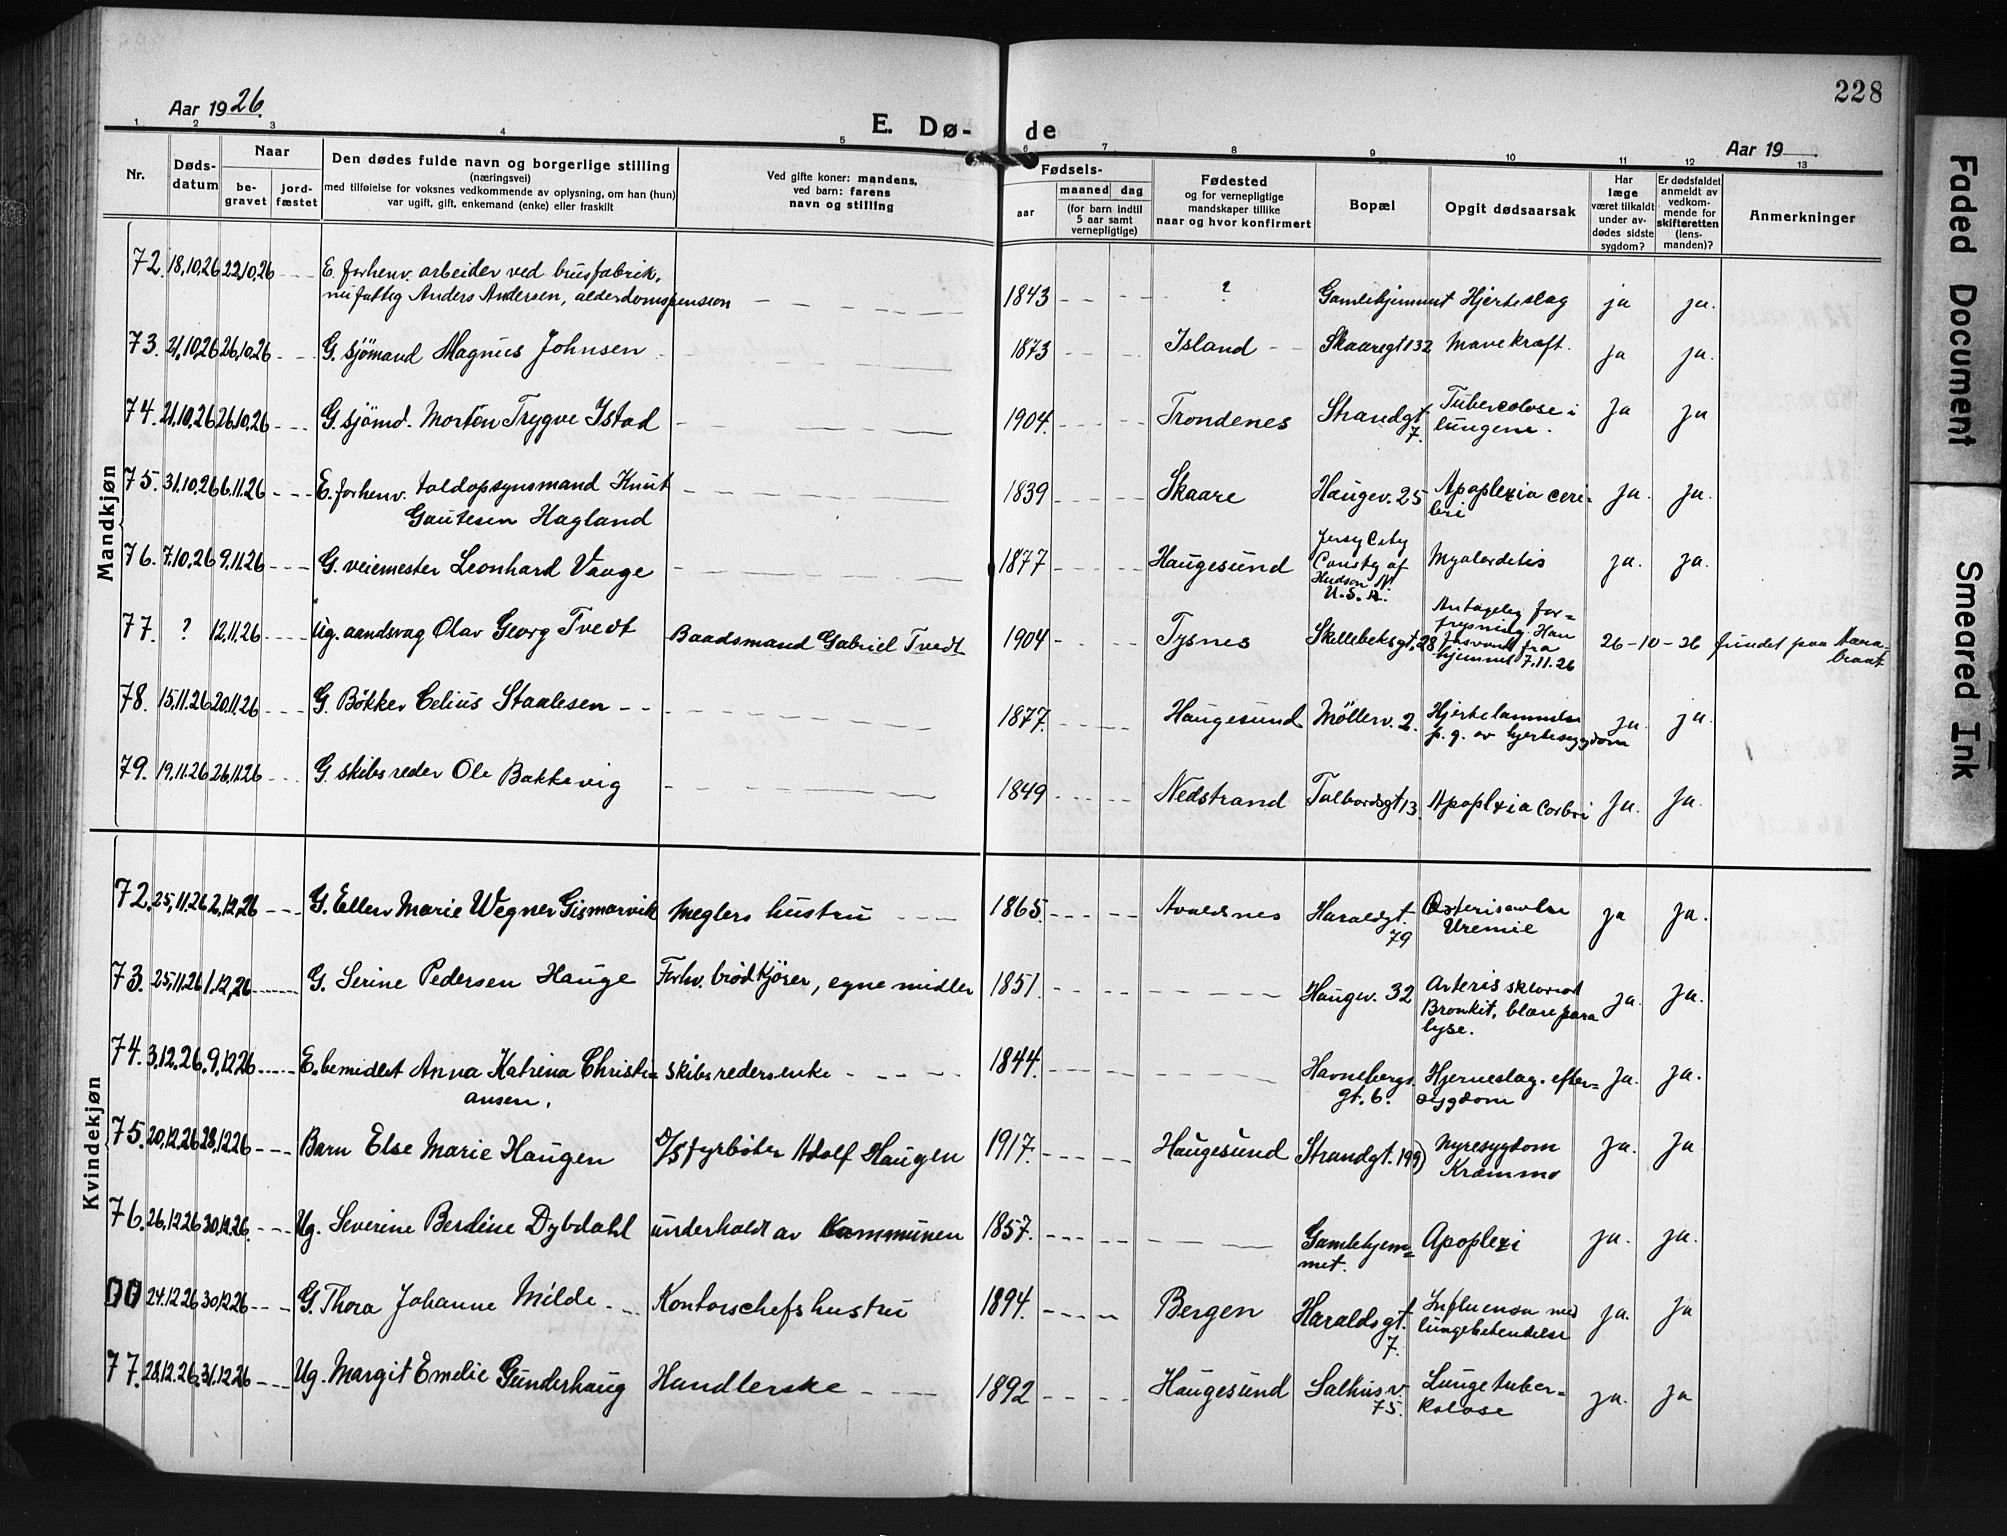 228
Aar 1926.
E. Dø- de
Aar 19
1 2 3 4 5 6 7 8 9 10 11 12 13
Nr.
Døds-
datum
Naar
be-
gravet
jord-
fæstet
Den dødes fulde navn og borgerlige stilling
(næringsvei)
med tilføielse for voksnes vedkommende av oplysning, om han (hun)
var ugift, gift, enkemand (enke) eller fraskilt
Ved gifte koner: mandens,
ved barn: farens
navn og stilling
Fødsels-
aar
maaned dag
(for barn indtil
5 aar samt
vernepligtige)
Fødested
og for vernepligtige
mandskaper tillike
naar og hvor konfirmert
Bopæl
Opgit dødsaarsak
Har
læge
været tilkaldt
under av-
dødes sidste
sygdom?
Er dødsfaldet
anmeldt av
vedkom-
mende for
skifteretten
(lens-
manden)?
Anmerkninger
Mandkjøn
72. 18.10.26 22.10.26 E. forhenv. arbeider ved brusfabrik,
nu fattig Anders Andersen, alderdomspension 1843 ? Gamlehjemmet Hjerteslag ja ja.
73. 21.10.26 26.10.26 G. sjömand Magnus Johnsen 1873 Island Skaaregt 132 Mavekræft. ja ja.
74. 21.10.26 26.10.26 G. sjömd. Morten Trygve Istad 1904. Trondenes Strandgt.
7. Tubercolose i
lungene. Ja ja
75. 31.10.26 6.11.26 E. forhenv. toldopsynsmand Knut
Gautesen Hagland 1839 Skaare Haugev. 25 Apoplexia cere-
bri Ja. ja.
76. 7.10.26 9.11.26 G. veiemester Leonhard Vaage 1877 Haugesund Jersy City
County of
Hudson N.
U.S.A. ja. ja.
77. ? 12.11.26 Ug. aandsvag Olav Georg Tvedt Baadsmand Gabriel Tvedt 1904 Tysnes Skillebeksgt. 28 Antagelig for-
frysning. Han
forsvandt fra
hjemmet 7.11.26 26-10-26 fundet paa
78. 15.11.26 20.11.26 G. Bøkker Celius Staalesen 1877. Haugesund Møllerv. 2. Hjertelammelse
p. g. av hjertesygdom ja. ja.
79. 19.11.26 26.11.26 G. skibsreder Ole Bakkevig 1849 Nedstrand 13. Apoplexia Ja. Ja.
Kvindekjøn
72. 25.11.26 2.12.26 G. Ellen Marie Wegner Gismarvik Meglers hustru 1865. Avaldsnes Haraldgt.
79 Uremie ja ja.
73. 25.11.26 1.12.26 G. Serine Pedersen Hauge Forhv. brödkjörer, egne midler 1851. Haugev. 32
Bronkit, blære para
lyse. ja. ja.
74. 3.12.26. 9.12.26 E. bemidlet Anna Katrina Christi-
ansen. Skibsredersenke 1844. Havnebergs
gt. 6. Hjerneslag. efter-
sygdom ja. ja.
75. 20.12.26 28.12.26 Barn Else Marie Haugen D/S fyrbøter Adolf Haugen 1917. Haugesund Strandgt. 199 Nyresygdom
ja. ja
76. 26.12.26 30.12.26. Ug. Severine Berdine Dybdahl underholdt av Kommunen 1857. Gamlehjem-
met. Apoplexi ja. ja.
24.12.26 30.12.26 G. Thora Johanne Milde Kontorschefs hustru 1894. Bergen Haraldsgt.
7. Influensa med
lungebetendelse ja. ja
77. 28.12.26. 31.12.26 Ug. Margit Emelie Gunderhaug Handlerske 1892 Haugesund Salhusv.
75. Lungetuber-
kolose ja. ja
Faded Document
Smeared Ink